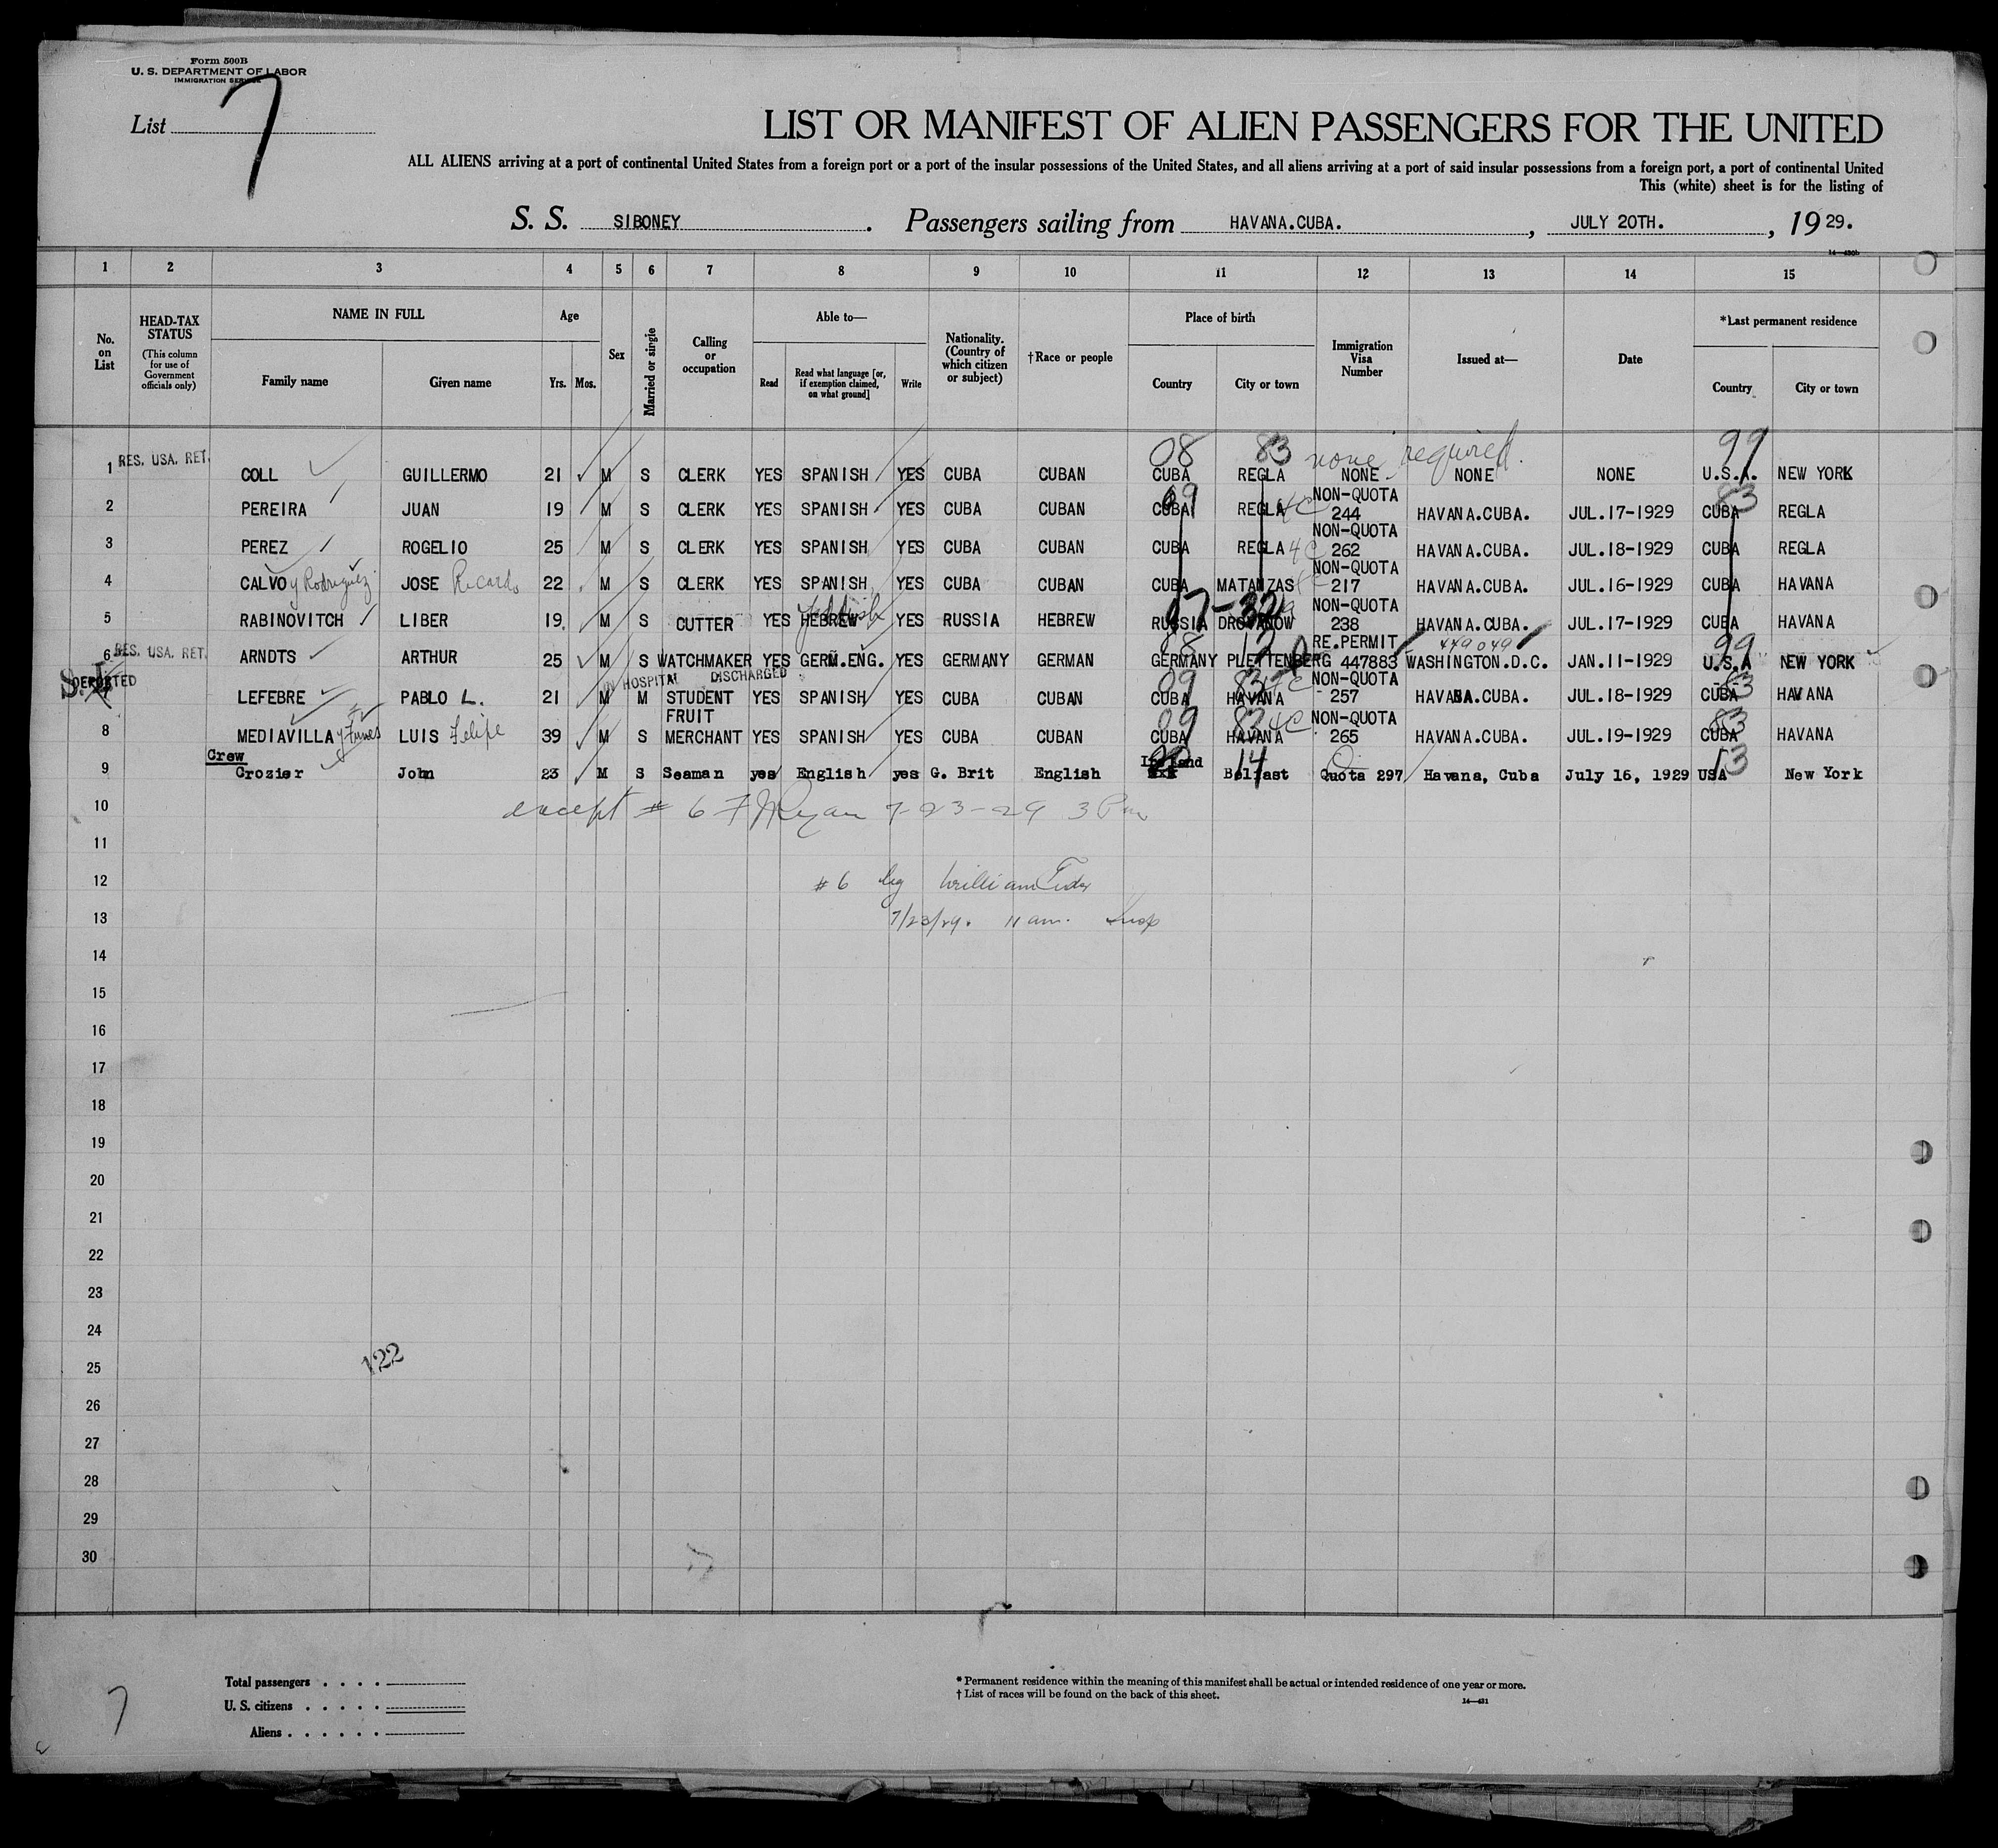 Form 500B
U. S. DEPARTMENT OF LABOR
IMMIGRATION SERVICE
List 7
LIST OR MANIFEST OF ALIEN PASSENGERS FOR THE UNITED
ALL ALIENS arriving at a port of continental United States from a foreign port or a port of the insular possessions of the United States, and all aliens arriving at a port of said insular possessions from a foreign port, a port of continental United
This (white) sheet is for the listing of
S. S. SIBONEY. Passengers sailing from HAVANA.CUBA., JULY 20TH., 1929.
14—430b
1 2 3 4 5 6 7 8 9 10 11 12 13 14 15
No. on List
HEAD-TAX STATUS (This column for use of Government officials only)
NAME IN FULL
Family name Given name
Age
Yrs. Mos.
Sex
Married or single
Calling or occupation
Able to—
Read Read what language [or, if exemption claimed, on what ground] Write
Nationality. (Country of which citizen or subject)
†Race or people
Place of birth
Country City or town
Immigration Visa Number
Issued at—
Date
*Last permanent residence
Country City or town
08 83 none required. 99
1 RES. USA. RET. COLL GUILLERMO 21 M S CLERK YES SPANISH YES CUBA CUBAN CUBA REGLA NONE NONE NONE U.S.A. NEW YORK
09 4C NON-QUOTA 83
2 PEREIRA JUAN 19 M S CLERK YES SPANISH YES CUBA CUBAN CUBA REGLA 244 HAVANA.CUBA. JUL.17-1929 CUBA REGLA
NON-QUOTA
3 PEREZ ROGELIO 25 M S CLERK YES SPANISH YES CUBA CUBAN CUBA REGLA 4C 262 HAVANA.CUBA. JUL.18-1929 CUBA REGLA
NON-QUOTA
4 CALVO y Rodriguez JOSE Ricardo 22 M S CLERK YES SPANISH YES CUBA CUBAN CUBA MATANZAS 4C 217 HAVANA.CUBA. JUL.16-1929 CUBA HAVANA
Yiddish NON-QUOTA
5 RABINOVITCH LIBER 19 M S CUTTER YES HEBREW YES RUSSIA HEBREW RUSSIA 238 HAVANA.CUBA. JUL.17-1929 CUBA HAVANA
08 12 RE.PERMIT 449049 99
6 RES. USA. RET. ARNDTS ARTHUR 25 M S WATCHMAKER YES GERM.ENG. YES GERMANY GERMAN GERMANY PLETTENBERG 447883 WASHINGTON.D.C. JAN.11-1929 U.S.A NEW YORK
S.I. DEPORTED IN HOSPITAL DISCHARGED 09 83 4C NON-QUOTA 83
LEFEBRE PABLO L. 21 M M STUDENT YES SPANISH YES CUBA CUBAN CUBA HAVANA 257 HAVANA.CUBA. JUL.18-1929 CUBA HAVANA
FRUIT 09 83 4C NON-QUOTA 83
8 MEDIAVILLA y Funes LUIS Felipe 39 M S MERCHANT YES SPANISH YES CUBA CUBAN CUBA HAVANA 265 HAVANA.CUBA. JUL.19-1929 CUBA HAVANA
Crew Ireland 14 13
9 Crozier John 23 M S Seaman yes English yes G. Brit English Belfast Quota 297 Havana, Cuba July 16, 1929 USA New York
10 except # 6 F J Ryan 7-23-29 3 Pm
11
12 # 6 by William
13 7/23/29. 11 am. Insp
14
15
16
17
18
19
20
21
22
23
24
25 122
26
27
28
29
30
Total passengers . . . .
U. S. citizens . . . . .
Aliens . . . . . .
* Permanent residence within the meaning of this manifest shall be actual or intended residence of one year or more.
† List of races will be found on the back of this sheet.
14—431
7